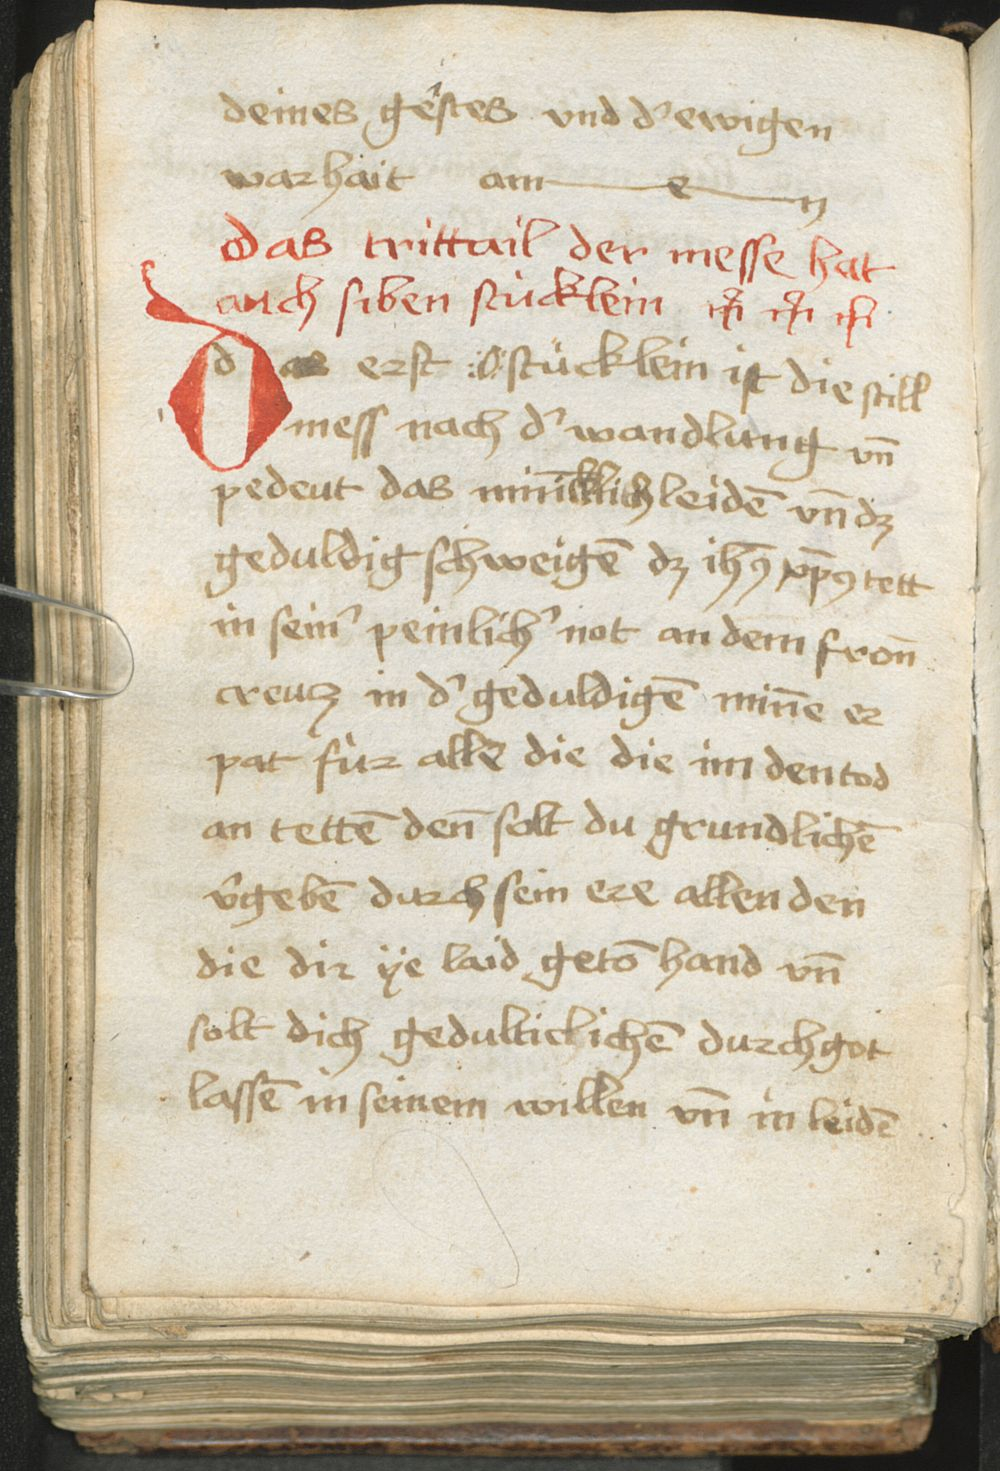 deines geistes vnd d' ewigen
warhait amen
das trittail der messe hat
auch siben stücklein
das erst stücklein ist die still
mess nach d' wandlung vn̄
pedeut das miñiklich leidē vn̄ dz
geduldig schweigē dz ihꝰ xp̄ꝰ tett
in sein' peinlich' not an dem fron̄
creutz in d' geduldigē min̄e er
pat für alle die die im den tod
an tettē den̄ solt du grundlichē
v'gebē durch sein ere allen den
die dir ÿe laid getō hand vn̄
solt dich gedulticlichē durch got
lassē in seinem willen vn̄ in leidē